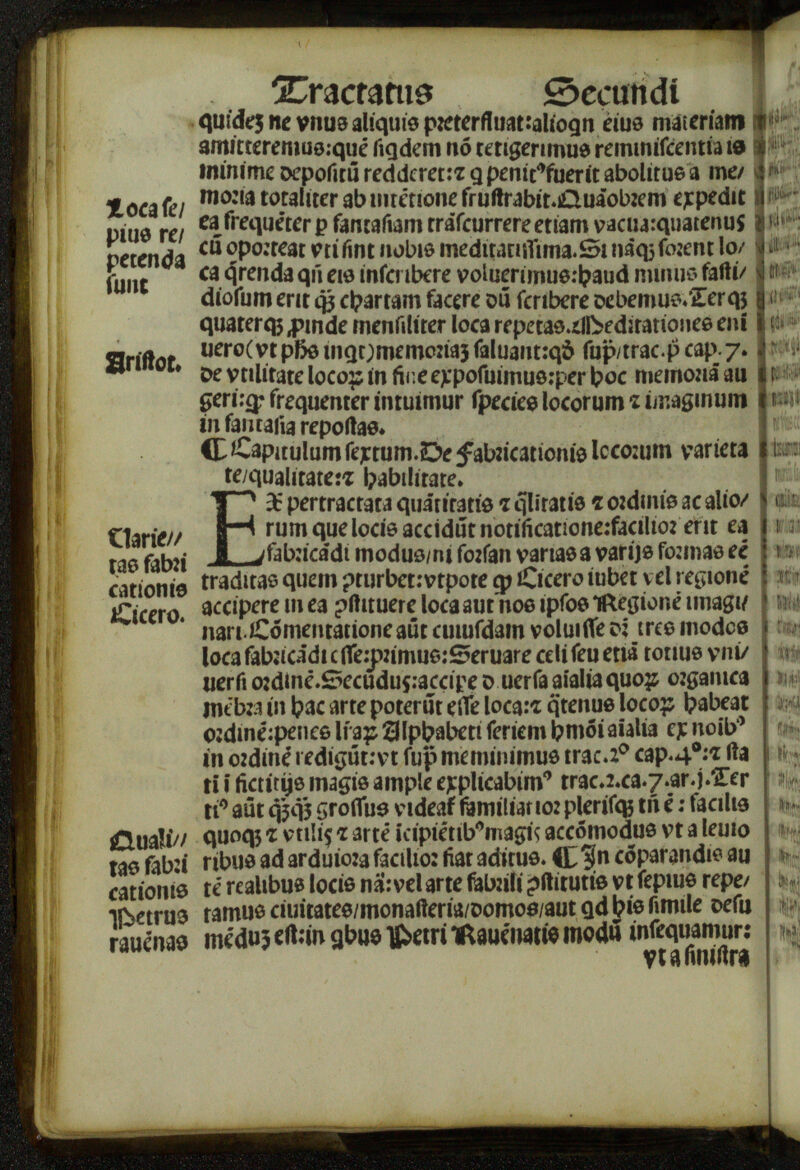 Tractatus Secundi
quidez ne vnus aliquis preterfluat:aliogn eius materiam
amitteremus:qué siqdem nó tetigerimus reminiscentia is
minime depositū redderet:⁊ q penitꝰfuerit abolitus a me/
moria totaliter ab intétione frustrabit.Quáobrem expedit
ea frequéter p fantasiam tráscurrere etiam vacua:quatenus
cū oporteat vti sint nobis meditatissima.Si náqȝ forent lo/
ca qrenda qñ eis inscribere voluerimus:haud minus fasti/
diosum erit qȝ chartam facere dū scribere debemus.Terqȝ
quaterqȝ ꝓinde mensiliter loca repetas.Meditationes eni
uero(vt phs inqt)memoriaȝ saluant:qð sup/trac.p cap.7.
de vtilitate locoꝝ in fine exposuimus:per hoc memoriá au
geri:q frequenter intuimur species locorum ⁊ imaginum
in fantasia repostas.
Loca se/
pius re/
petenda
sunt
Aristot.
⁋ Capitulum sextum.De Fabricationis locorum varieta
te/qualitate:⁊ habilitate.
EX pertractata quátitatis ⁊ qlitatis ⁊ ordinis ac alio/
rum que locis accidūt notificatione:facilior erit ea
fabricádi modus/ni forsan varias a varijs formas eé
traditas quem ꝓturbet:vtpote ꝙ Cicero iubet vel regioné
accipere in ea ꝓstituere loca aut nos ipsos Regioné imagi/
nari.Cómentatione aūt cuiusdam voluisse oȝ tres modos
loca fabricádi esse:primus:Seruare celi seu etiá totius vni/
uersi ordiné.Secūdus:accipe d uersa aialia quoꝝ organica
mébra in hac arte poterūt esse loca:⁊ qtenus locoꝝ habeat
ordiné:penes lraꝝ Alphabeti seriem hmói aialia ex noibꝰ
in ordiné redigūt:vt sup meminimus trac.2º cap.4º:⁊ sta
ti i fictitijs magis ample explicabimꝰ trac.2.ca.7.ar.j.Ter
tiꝰ aūt qȝqȝ grossus videat familiarior plerisqȝ tñ é: facilis
quoqȝ ⁊ vtilis ⁊ arté icipiétibꝰmagis accómodus vt a leuio
ribus ad arduiora facilior fiat aditus. ⁋ In cóparandis au
té realibus locis ná:vel arte fabrili ꝓstitutis vt sepius repe/
ramus ciuitates/monasteria/domos/aut qd his simile desu
méduȝ est:in qbus Petri Rauénatis modū insequamur:
vt a sinistra
Varie//
tas fabri
cationis
Cicero.
Quali//
tas fabri
cationis
Petrus
rauénas